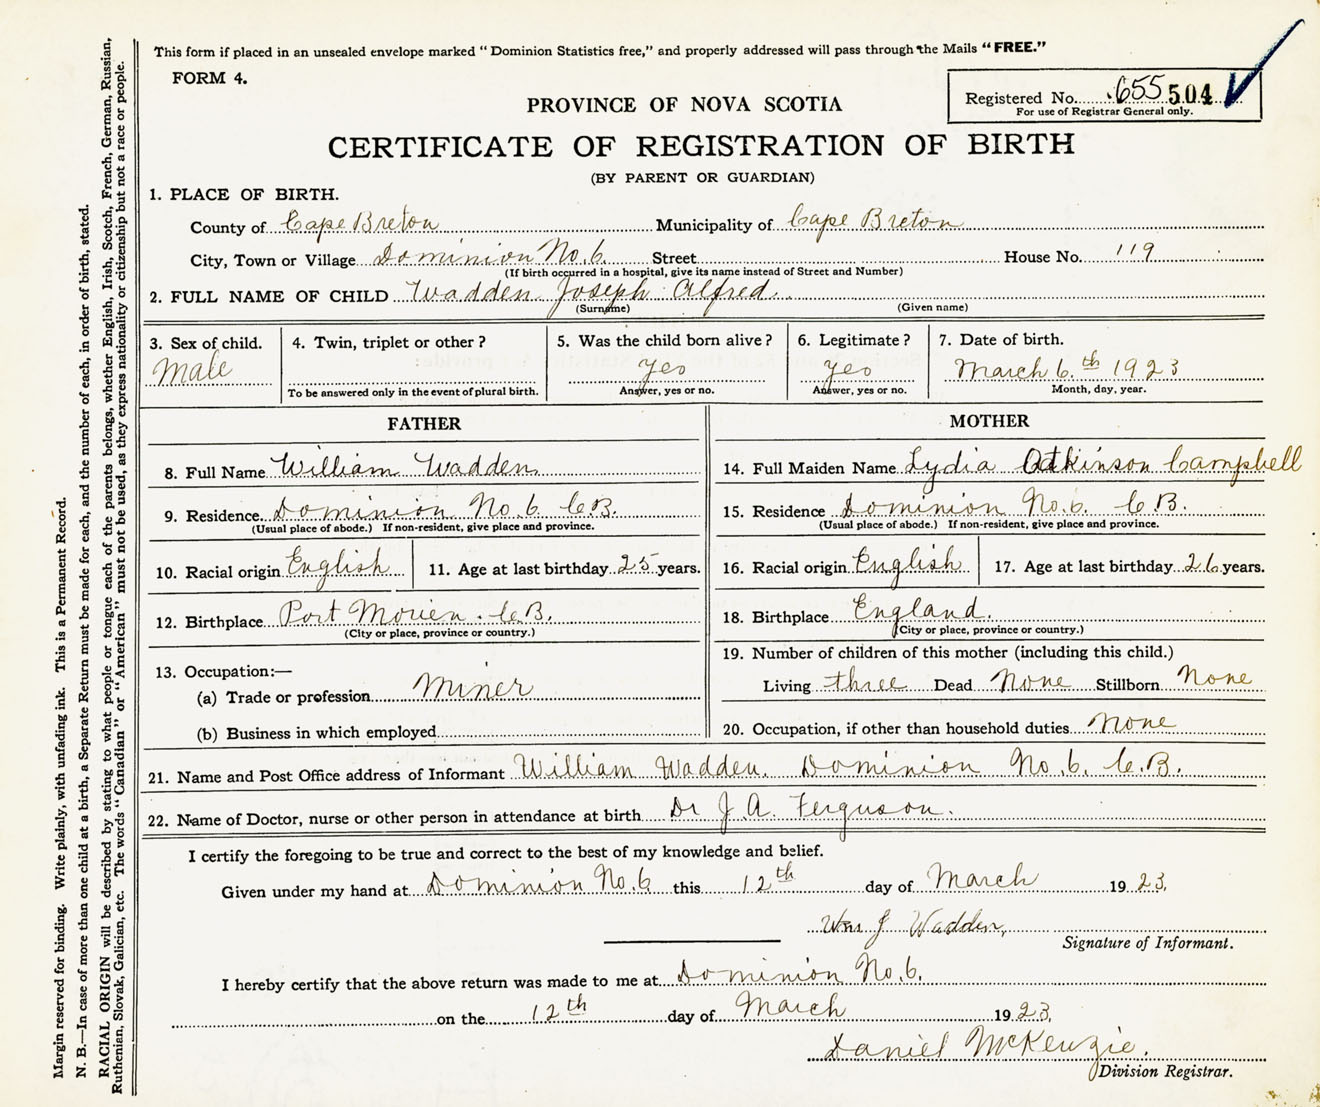 This form if placed in an unsealed envelope marked “Dominion Statistics free,” and properly addressed will pass through the Mails “FREE.”
FORM 4.
Registered No. 655 504
For use of Registrar General only.
PROVINCE OF NOVA SCOTIA
CERTIFICATE OF REGISTRATION OF BIRTH
(BY PARENT OR GUARDIAN)
1. PLACE OF BIRTH.
County of Cape Breton Municipality of Cape Breton
City, Town or Village Dominion No. 6. Street House No. 119
(If birth occurred in a hospital, give its name instead of Street and Number)
2. FULL NAME OF CHILD Wadden Joseph Alfred.
(Surname) (Given name)
3. Sex of child. 4. Twin, triplet or other? 5. Was the child born alive? 6. Legitimate? 7. Date of birth.
Male yes yes March 6th 1923
To be answered only in the event of plural birth. Answer, yes or no. Answer, yes or no. Month, day, year.
FATHER
8. Full Name William Wadden
9. Residence Dominion No. 6 C.B.
(Usual place of abode.) If non-resident, give place and province.
10. Racial origin English 11. Age at last birthday 25 years.
12. Birthplace Port Morien. C.B.
(City or place, province or country.)
13. Occupation:—
(a) Trade or profession Miner
(b) Business in which employed
MOTHER
14. Full Maiden Name Lydia Atkinson Campbell
15. Residence Dominion No. 6. C.B.
(Usual place of abode.) If non-resident, give place and province.
16. Racial origin English 17. Age at last birthday 26 years.
18. Birthplace England.
(City or place, province or country.)
19. Number of children of this mother (including this child.)
Living three Dead None Stillborn None
20. Occupation, if other than household duties None
21. Name and Post Office address of Informant William Wadden. Dominion No. 6. C.B.
22. Name of Doctor, nurse or other person in attendance at birth Dr J. A. Ferguson.
I certify the foregoing to be true and correct to the best of my knowledge and belief.
Given under my hand at Dominion No. 6 this 12th day of March 1923.
Wm J Wadden,
Signature of Informant.
I hereby certify that the above return was made to me at Dominion No. 6.
on the 12th day of March 1923.
Daniel McKenzie.
Division Registrar.
Margin reserved for binding. Write plainly, with unfading ink. This is a Permanent Record.
N. B.—In case of more than one child at a birth, a Separate Return must be made for each, and the number of each, in order of birth, stated.
RACIAL ORIGIN will be described by stating to what people or tongue each of the parents belongs, whether English, Irish, Scotch, French, German, Russian,
Ruthenian, Slovak, Galician, etc. The words “Canadian” or “American” must not be used, as they express nationality or citizenship but not a race or people.